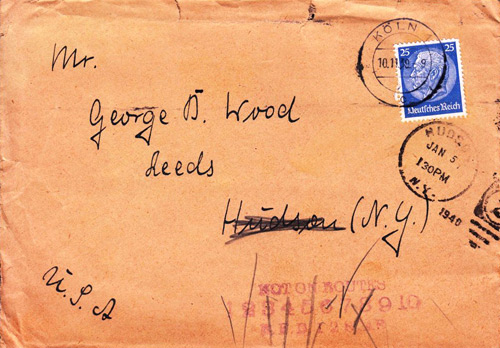 KÖLN
10.11.39.-9
25 25
Deutsches Reich
Mr.
George D. Wood
Leeds
Hudson (N.Y.)
U.S.A
HUDSON
JAN 5
130PM
N.Y.
1940
MOTOR ROUTES
12345678910